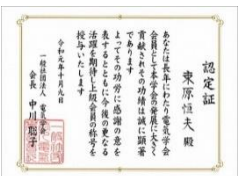 認定証
東原恒夫 殿
あなたは長年にわたり電気学会
会員として本学会の発展に大きく
貢献されその功績は誠に顕著
であります
よってその功労に感謝の意を
表するとともに今後の更なる
活躍を期待し上級会員の称号を
授与いたします
令和元年十月元日
一般社団法人 電気学会
会長 中川聡子